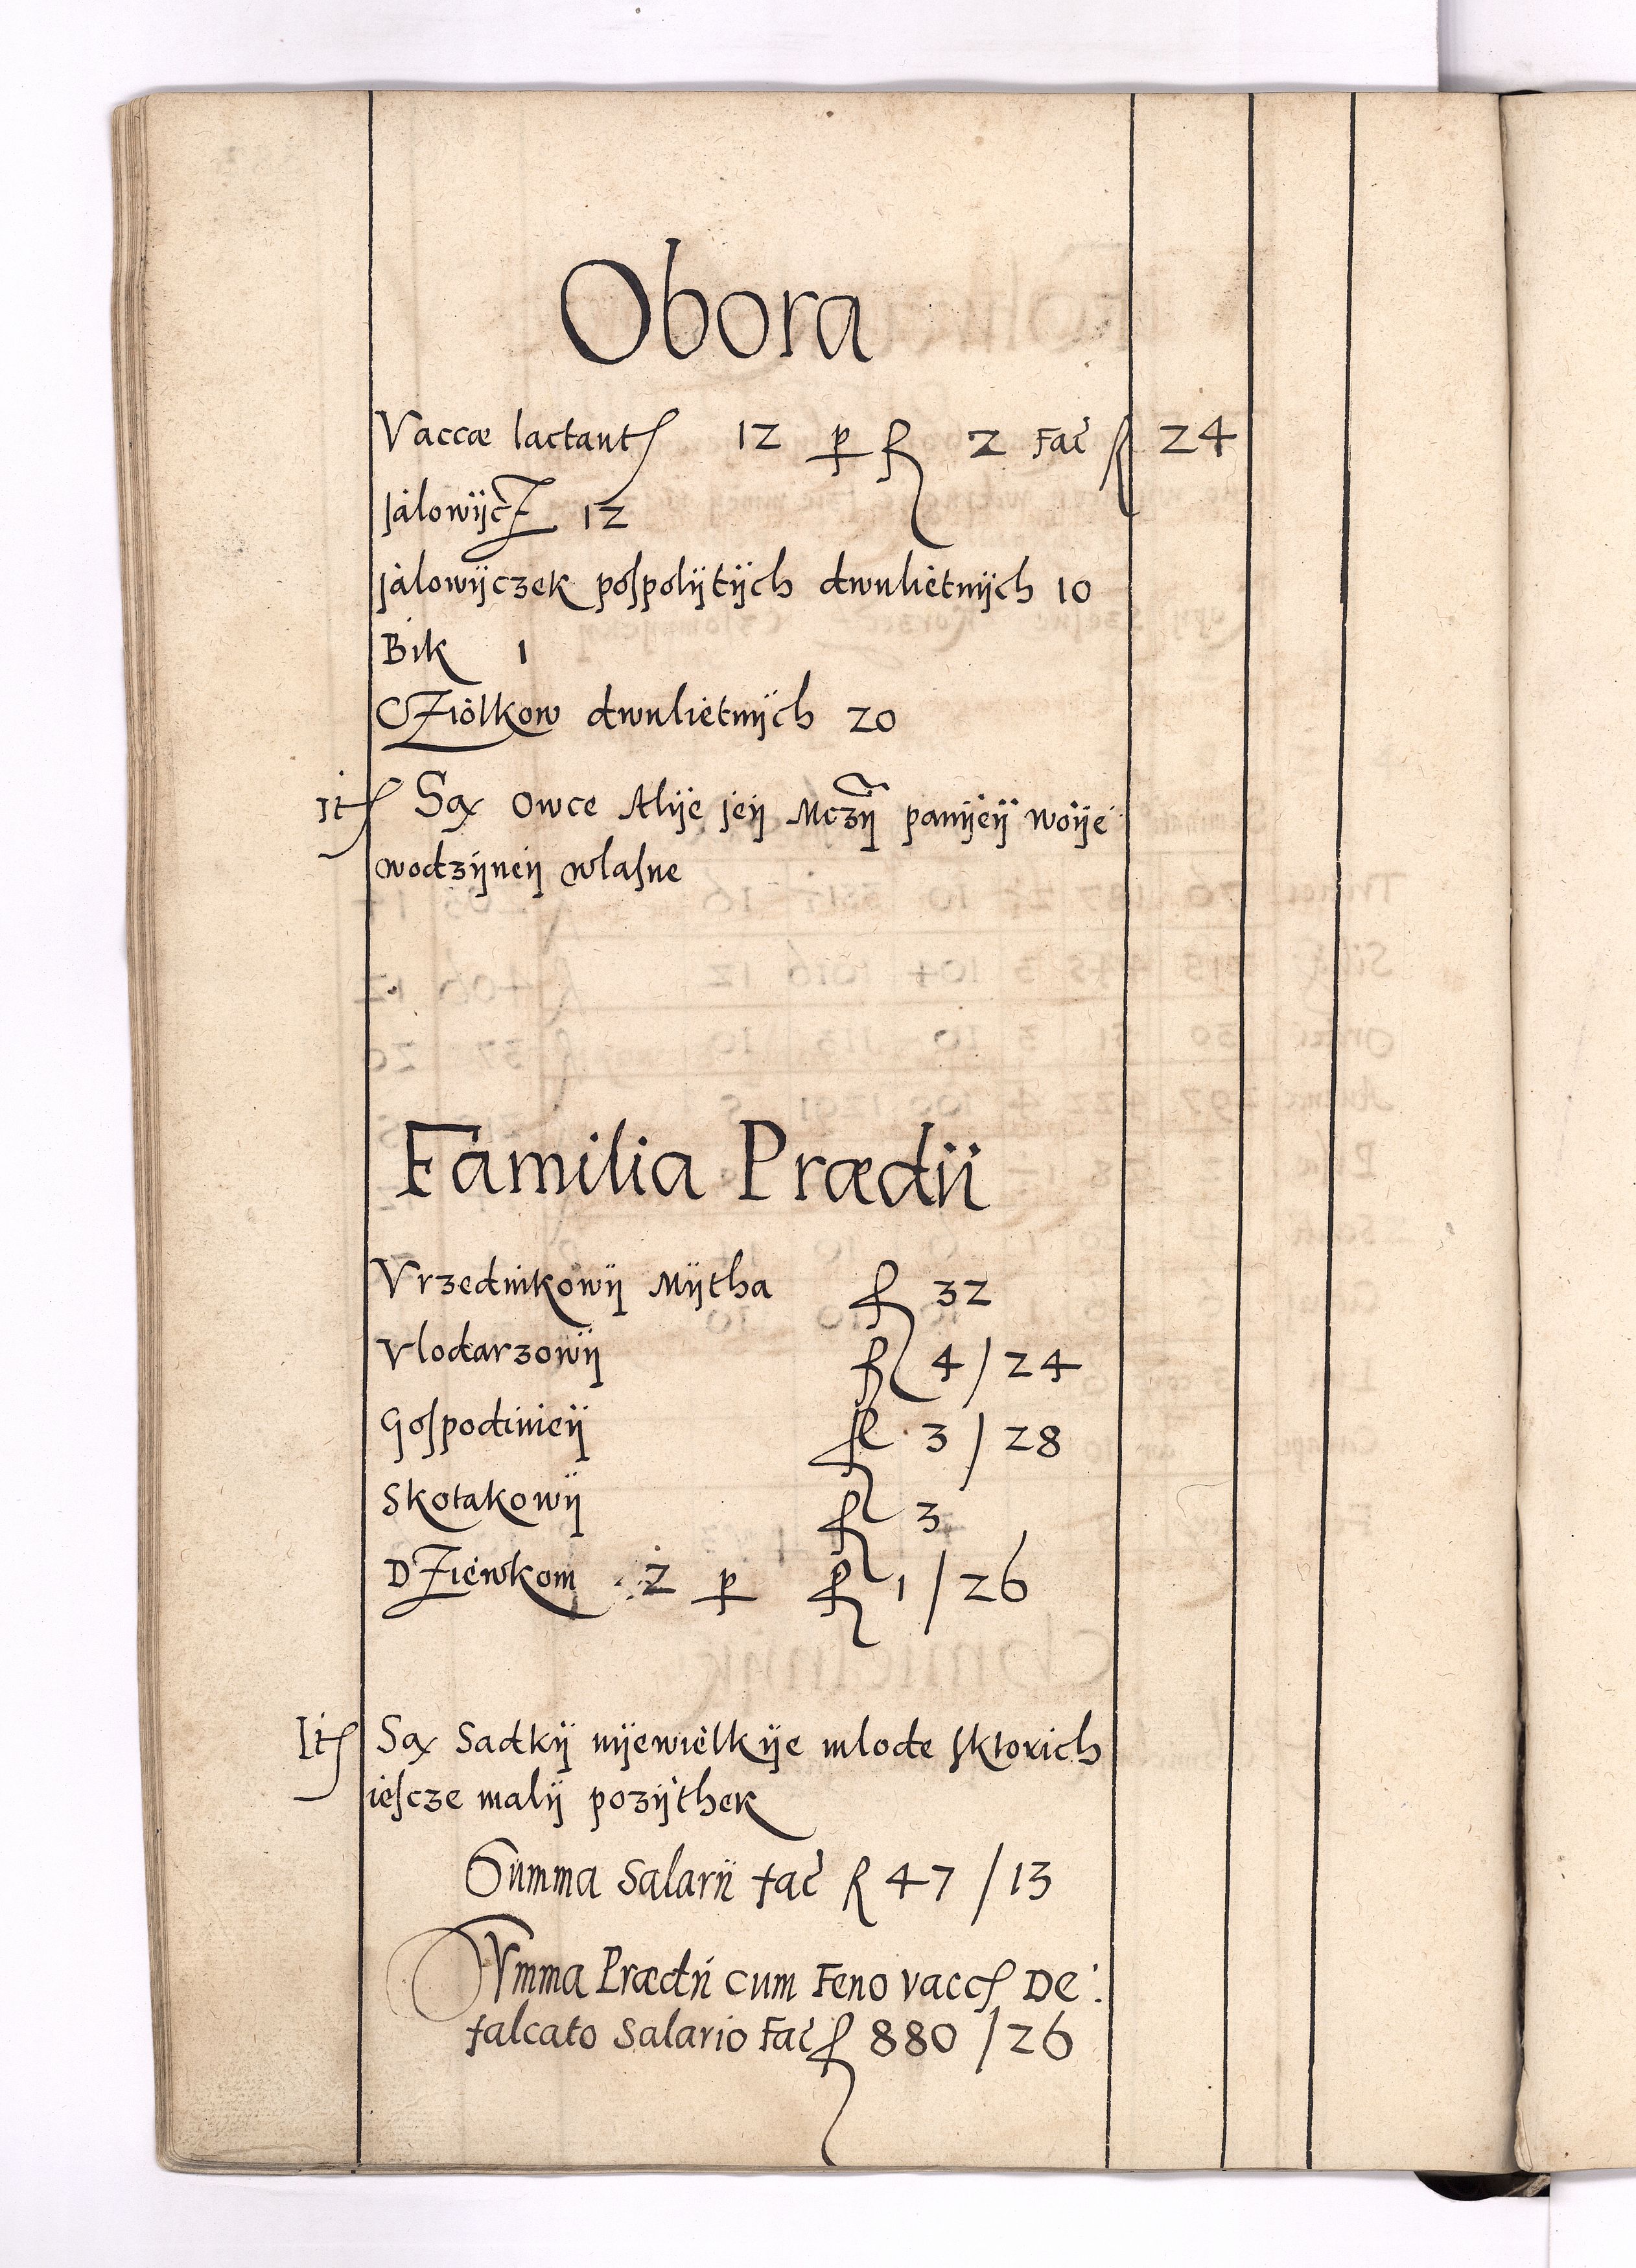 Obora
Vaccæ lactant 12 p fl 2 Fac fl 24
jalowijcz 12
jalowijczek pospolijtijch dwulietnijch 10
Bik 1
Cziolkow dwulietnijch 20
It Są owce Alije jeij Mczij panijeij woije
wodzijneij wlasne
Familia Prædii
Vrzednikowij Mijtha fl 32
Vlodarzowij fl 4/24
Gospodinieij fl 3/28
Skotakowij fl 3
Dziewkom 2 p fl 1/26
It Są Sadkij nijewielkije mlode sktorich
iescze malij pozijthek
Summa Salarii fac fl 47/13
Summa Prædii cum Feno vacc De
falcato Salario Fac fl 880/26